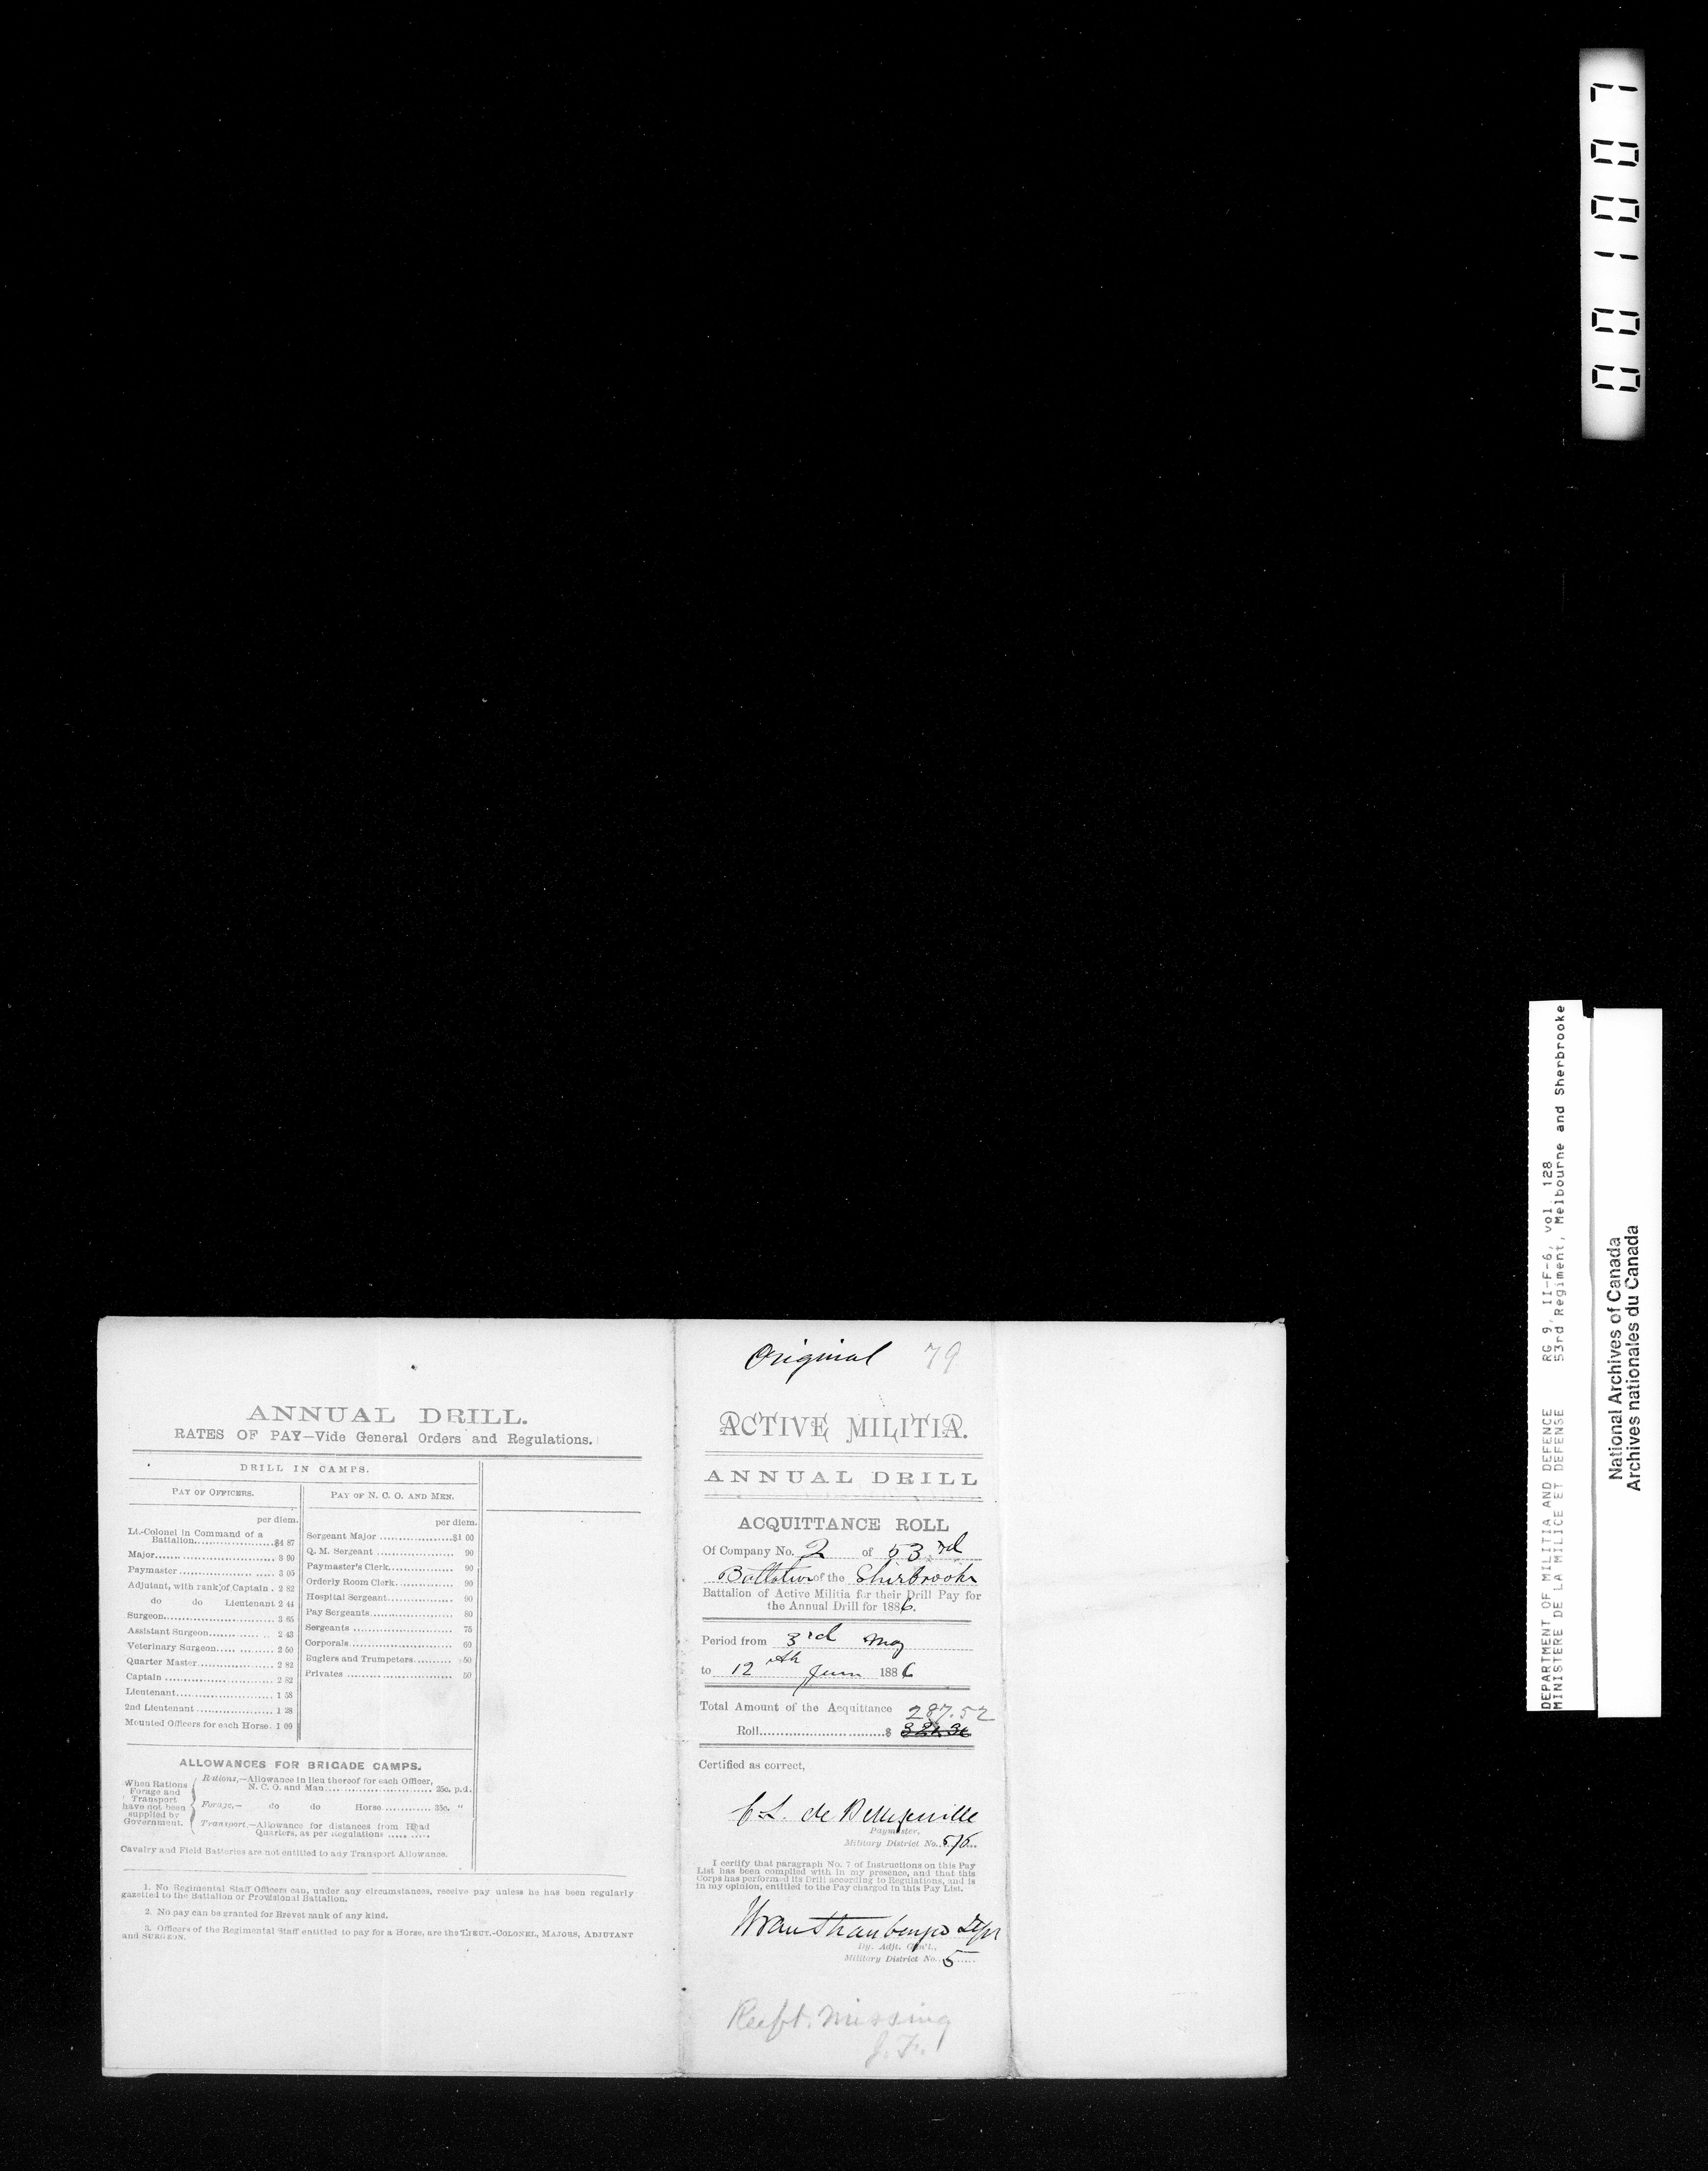 001007
DEPARTMENT OF MILITIA AND DEFENCE RG 9, II-F-6, vol. 128
MINISTERE DE LA MILICE ET DEFENSE 53rd Regiment, Melbourne and Sherbrooke
National Archives of Canada
Archives nationales du Canada
ANNUAL DRILL.
RATES OF PAY—Vide General Orders and Regulations.
DRILL IN CAMPS.
PAY OF OFFICERS.
per diem.
Lt.-Colonel in Command of a
Battalion....................$4 87
Major.............................. 3 90
Paymaster........................ 3 05
Adjutant, with rank of Captain . 2 82
do do Lieutenant 2 44
Surgeon............................ 3 65
Assistant Surgeon............ 2 43
Veterinary Surgeon............ 2 50
Quarter Master.................. 2 82
Captain ........................... 2 82
Lieutenant........................ 1 58
2nd Lieutenant .................. 1 28
Mounted Officers for each Horse. 1 00
PAY OF N. C. O. AND MEN.
per diem.
Sergeant Major ..................$1 00
Q. M. Sergeant .................. 90
Paymaster's Clerk............... 90
Orderly Room Clerk............. 90
Hospital Sergeant............... 90
Pay Sergeants.................... 80
Sergeants ........................ 75
Corporals ........................ 60
Buglers and Trumpeters......... 50
Privates .......................... 50
ALLOWANCES FOR BRIGADE CAMPS.
When Rations
Forage and
Transport
have not been
supplied by
Government.
Rations,—Allowance in lieu thereof for each Officer,
N. C. O. and Man........................... 25c. p.d.
Forage,— do do Horse............ 35c. "
Transport.—Allowance for distances from Head
Quarters, as per Regulations ..... .....
Cavalry and Field Batteries are not entitled to any Transport Allowance.
1. No Regimental Staff Officers can, under any circumstances, receive pay unless he has been regularly
gazetted to the Battalion or Provisional Battalion.
2. No pay can be granted for Brevet rank of any kind.
3. Officers of the Regimental Staff entitled to pay for a Horse, are the LIEUT.-COLONEL, MAJORS, ADJUTANT
and SURGEON.
Original 79
ACTIVE MILITIA.
ANNUAL DRILL
ACQUITTANCE ROLL
Of Company No. 2 of 53rd
Battalion of the Sherbrooke
Battalion of Active Militia for their Drill Pay for
the Annual Drill for 1886.
Period from 3rd May
to 12th June 1886
Total Amount of the Acquittance 287.52
Roll................................$
Certified as correct,
Paymaster.
Military District No. 5/6
I certify that paragraph No. 7 of Instructions on this Pay
List has been complied with in my presence, and that this
Corps has performed its Drill according to Regulations, and is
in my opinion, entitled to the Pay charged in this Pay List.
Dy. Adjt. Gen'l.,
Military District No. 5
missing
J.F.